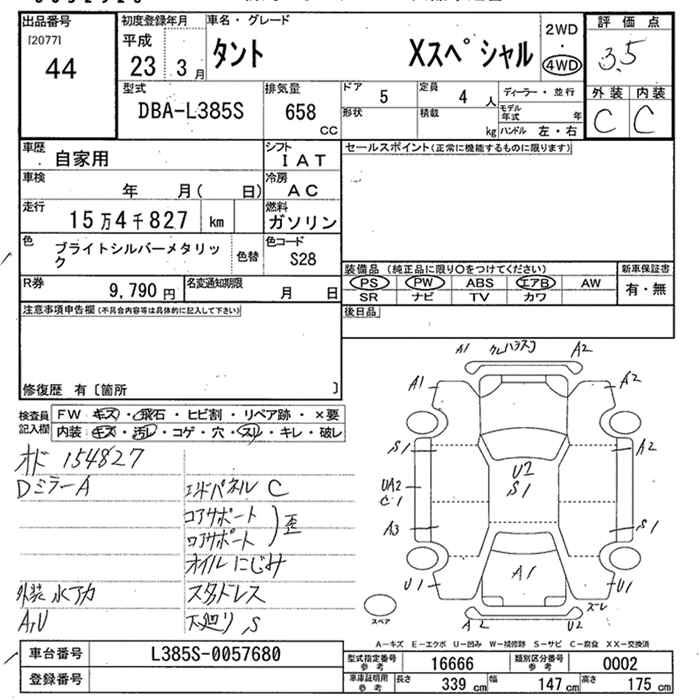 出品番号
[2077]
44
初度登録年月
平成
23 3月
車名・グレード
タント Xスペシャル
2WD
・
4WD
評価点
3.5
型式
DBA-L385S
排気量
658
cc
ドア
5
定員
4 人
ディーラー・並行
形状
積載
kg
モデル年式 年
ハンドル 左・右
外装 内装
C C
車歴
自家用
シフト
IAT
セールスポイント(正常に機能するものに限ります)
車検
年 月( 日)
冷房
AC
走行
15万4千827 km
燃料
ガソリン
色
ブライトシルバーメタリック
色替
色コード
S28
装備品 (純正品に限り○をつけてください)
新車保証書
PS PW ABS エアB AW
有・無
SR ナビ TV カワ
R券
9,790 円
名変通知期限
月 日
後日品
注意事項申告欄(不具合内容等は具体的に記入して下さい)
修復歴 有〔箇所 〕
検査員記入欄
FW キズ・飛石・ヒビ割・リペア跡・×要
内装 キズ・汚レ・コゲ・穴・スリ・キレ・破レ
オド 154827
Dミラー A
エンドパネル C
コアサポート
ロアサポート
歪
オイルにじみ
外装 水アカ
スタッドレス
A,U
下廻り S
A1
A2
A1
A2
S1
A2
UA2
C1
U2
S1
A3
S1
A1
U1
U1
ズレ
A2
U2
スペア
A-キズ E-エクボ U-凹み W-補修跡 S-サビ C-腐食 XX-交換済
車台番号
L385S-0057680
登録番号
型式指定番号
参考
16666
類別区分番号
参考
0002
車庫証明用
参考
長さ
339 cm
幅
147 cm
高さ
175 cm